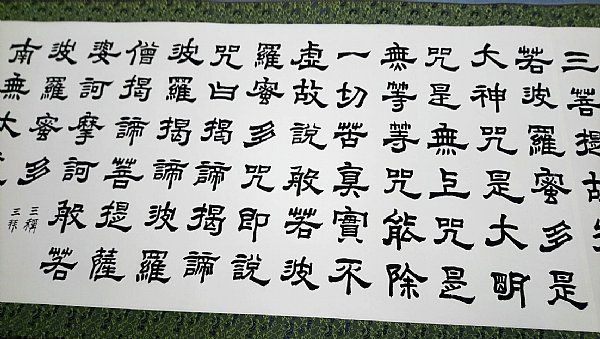 三菩提故
若波羅蜜多是
大神咒是大明
咒是無上咒是
無等等咒能除
一切苦真實不
虛故說般若波
羅蜜多咒即說
咒曰揭諦揭諦
波羅揭諦波羅
僧揭諦菩提薩
婆訶摩訶般若
波羅蜜多 三稱
南無大